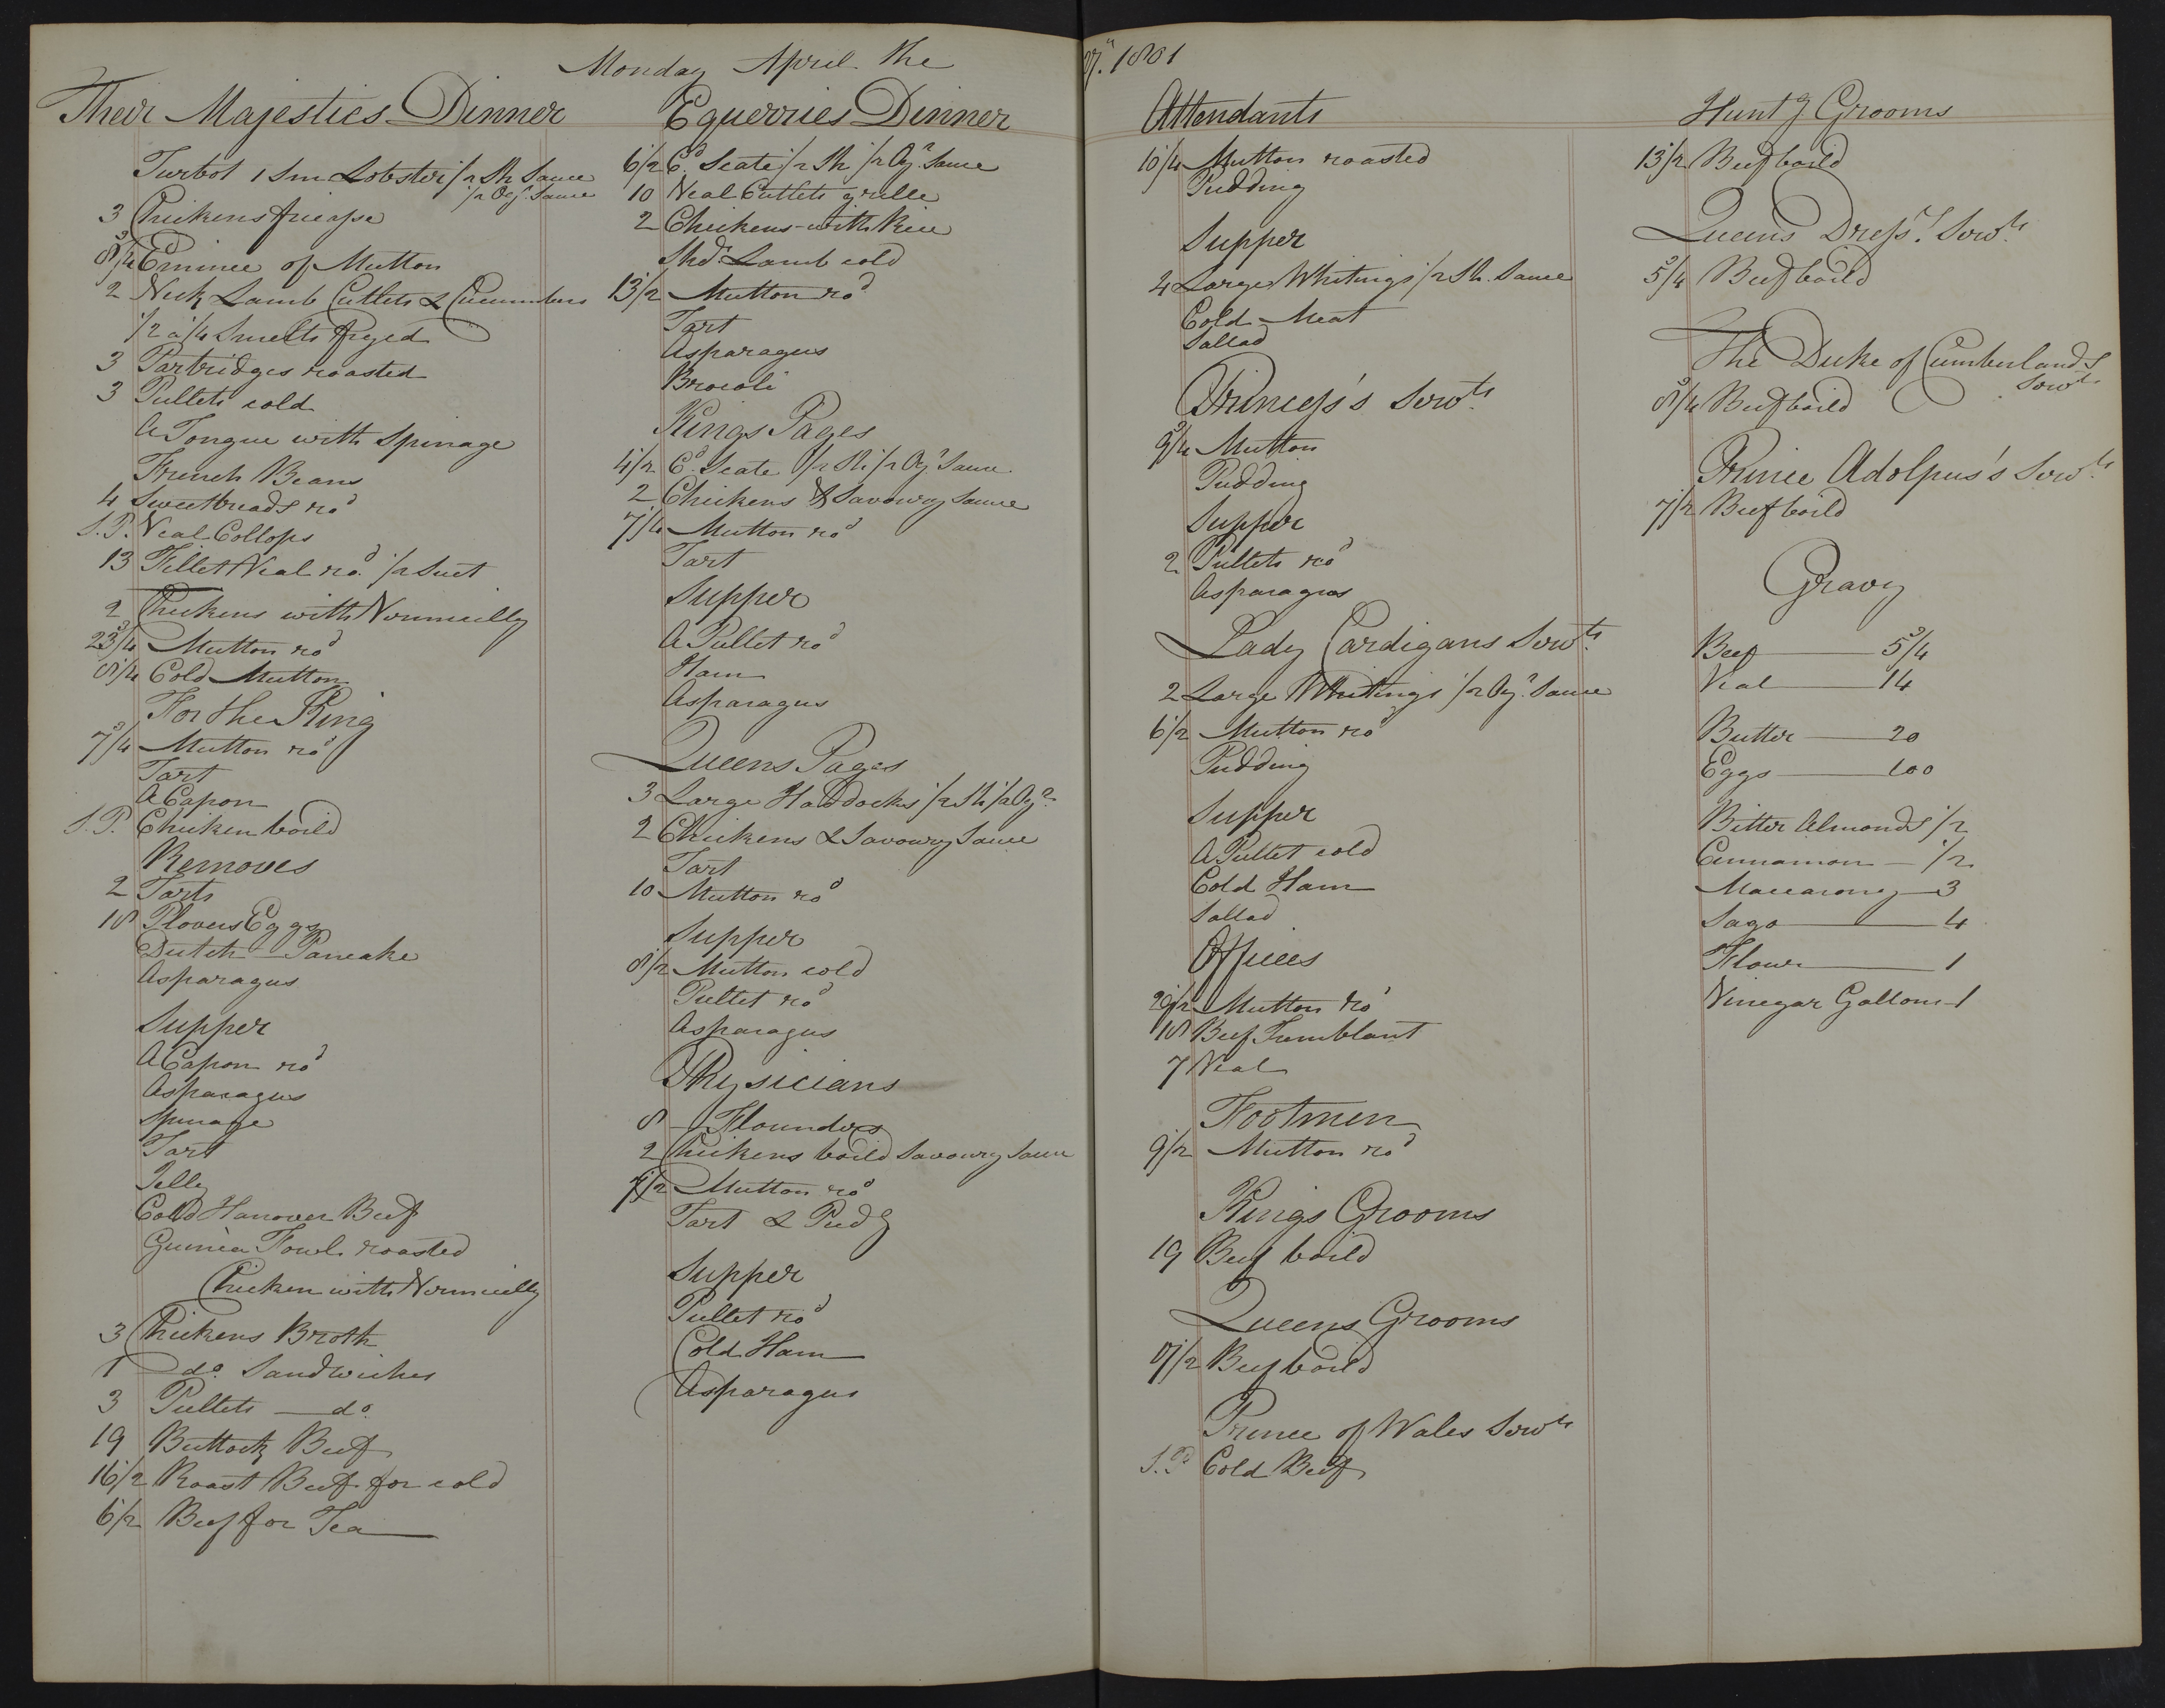 Monday April the 27th. 1801
Their Majesties Dinner
Turbot 1 Sm Lobster 1/2 Sh Sauce
1/2 Oyr. Sauce
3 Chickens fricasse
8 3/4 Emince of Mutton
2 Neck Lamb Cutlets & Cucumbers
1/2 a 1/4 Smelts fryed
3 Partridges roasted
3 Pullets cold
A Tongue with Spinage
French Beans
4 Sweetbreads rod
S.P. Veal Collops
13 Fillet Veal rod. 1/2 Suet
2 Chickens with Vermicilly
23 3/4 Mutton rod
8 1/4 Cold Mutton
For the King
7 3/4 Mutton rod
Tart
A Capon
S.P. Chicken boild
Removes
2 Tarts
18 Plovers Eggs
Dutch Pancake
Asparagus
Supper
A Capon rod
Asparagus
Spinage
Tart
Jelly
Cold Hanover Beef
Guinea Fowl roasted
Chicken with Vermicilly
3 Chickens Broth
1 do. Sandwiches
3 Pullets do.
19 Buttock Beef
16 1/2 Roast Beef for cold
6 1/2 Beef for Tea
Equerries Dinner
6 1/2 Cd. Scate 1/2 Sh 1/2 Oyr. Sauce
10 Veal Cutlets grelle
2 Chickens with Rice
Shdr. Lamb cold
13 1/2 Mutton rod
Tart
Asparagus
Brocoli
Kings Pages
4 1/2 Cd. Scate 1/2 Sh 1/2 Oyr. Sauce
2 Chickens & Savoury Sauce
7 1/4 Mutton rod
Tart
Supper
A Pullet rod
Ham
Asparagus
Queens Pages
3 Large Haddocks 1/2 Sh 1/2 Oyr.
2 Chickens & Savoury Sauce
Tart
10 Mutton rod
Supper
8 1/2 Mutton cold
Pullet rod
Asparagus
Physicians
8 Flounders
2 Chickens boild Savoury Sauce
1/2 Mutton rod
Tart & Pudg
Supper
Pullet rod
Cold Ham
Asparagus
Attendants
10 1/4 Mutton roasted
Pudding
Supper
4 Large Whitings 1/2 Sh. Sauce
Cold Meat
Sallad
Princess's Servts.
9 3/4 Mutton
Pudding
Supper
2 Pullets rod
Asparagus
Lady Cardigans Servts.
2 Large Whitings 1/2 Oyr. Sauce
6 1/2 Mutton rod
Pudding
Supper
A Pullet cold
Cold Ham
Sallad
Offices
29 1/2 Mutton rod
18 Beef Tremblant
7 Veal
Footmen
9 1/2 Mutton rod
Kings Grooms
19 Beef boild
Queens Grooms
17 1/2 Beef boild
Prince of Wales Servts
S.P. Cold Beef
Huntg Grooms
13 1/2 Beef boild
Queens Dressrs. Servts.
5 3/4 Beef boild
The Duke of Cumberlands
Servts.
8 3/4 Beef boild
Prince Adolpus's Servts.
7 1/2 Beef boild
Gravy
Beef 5 3/4
Veal 14
Butter 20
Eggs 100
Bitter Almonds 1/2
Cinnamon 1/2
Maccarony 3
Sago 4
Flour 1
Vinegar Gallons 1